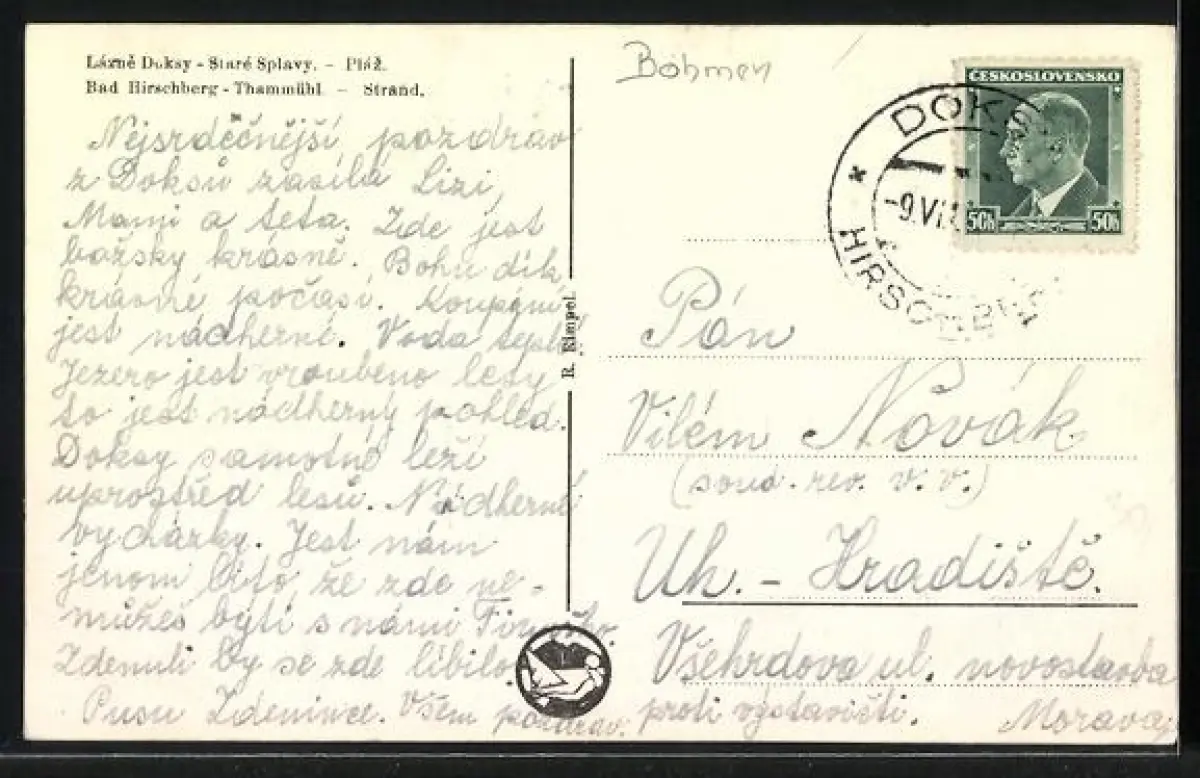 Lázně Doksy - Staré Splavy. - Pláž.
Bad Hirschberg - Thammühl - Strand.
Nejsrdečnější pozdrav
z Doksů zasílá Lizi,
Mami a teta. Zde jest
božsky krásně. Bohu dík
krásné počasí. Koupání
jest nádherné. Voda teplá
Jezero jest vroubeno lesy
to jest nádherný pohled.
Doksy samotné leží
uprostřed lesů. Nádherné
vycházky. Jest nám
jenom líto, že zde ne-
můžeš býti s námi
Zdenuli by se zde líbilo.
Pusu Zdenince. Všem pozdrav.
R. Rimpel.
Böhmen
ČESKOSLOVENSKO
50h 50h
DOKSY
-9.VI
HIRSCHBERG
Pán
Vilém Novák
(soud. rev. v. v.)
Uh. - Hradiště.
Všehrdova ul. novostavba
proti výstavišti. Morava